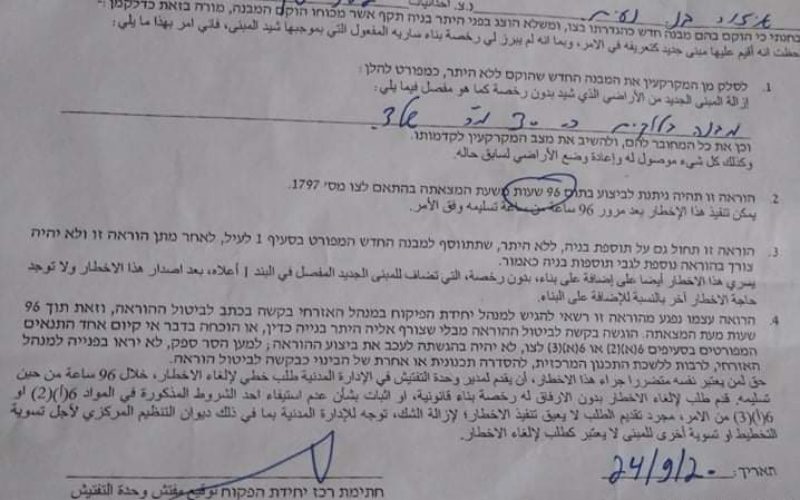 נ.צ. احداثيات
בחנתי כי הוקם בהם מבנה חדש כהגדרתו בצו, ומשלא הוצג בפני היתר בניה תקף אשר מכוחו הוקם המבנה, מורה בזאת כדלקמן:
حظت انه أقيم عليها مبنى جديد كتعريفه في الامر، وبما انه لم يبرز لي رخصة بناء سارية المفعول التي بموجبها شيد المبنى، فاني امر بهذا ما يلي:
1. לסלק מן המקרקעין את המבנה החדש שהוקם ללא היתר, כמפורט להלן:
إزالة المبنى الجديد من الأراضي الذي شيد بدون رخصة كما هو مفصل فيما يلي:
מבנה בלוקים כ- 30 מ"ר
וכן את כל המחובר להם, ולהשיב את מצב המקרקעין לקדמותו.
وكذلك كل شيء موصول له وإعادة وضع الأراضي لسابق حاله.
2. הוראה זו תהיה ניתנת לביצוע בתום 96 שעות משעת המצאתה בהתאם לצו מס' 1797.
يمكن تنفيذ هذا الإخطار بعد مرور 96 ساعة من ساعة تسليمه وفق الأمر.
3. הוראה זו תחול גם על תוספת בניה, ללא היתר, שתתווסף למבנה החדש המפורט בסעיף 1 לעיל, לאחר מתן הוראה זו ולא יהיה
צורך בהוראה נוספת לגבי תוספות בניה כאמור.
يسري هذا الاخطار أيضا على إضافة على بناء، بدون رخصة، التي تضاف للمبنى الجديد المفصل في البند 1 أعلاه، بعد اصدار هذا الاخطار ولا توجد
حاجة الاخطار آخر بالنسبة للإضافة على البناء.
4. הרואה עצמו נפגע מהוראה זו רשאי להגיש למנהל יחידת הפיקוח במנהל האזרחי בקשה בכתב לביטול ההוראה, וזאת תוך 96
שעות מעת המצאתה. הוגשה בקשה לביטול ההוראה מבלי שצורף אליה היתר בנייה כדין, או הוכחה בדבר אי קיום אחד התנאים
המפורטים בסעיפים 6(א)(2) או 6(א)(3) לצו, לא יהיה בהגשתה לעכב את ביצוע ההוראה; למען הסר ספק, לא יראו בפנייה למנהל
האזרחי, לרבות ללשכת התכנון המרכזית, להסדרה תכנונית או אחרת של הבינוי כבקשה לביטול הוראה.
حق لمن يعتبر نفسه متضررا جراء هذا الاخطار، أن يقدم لمدير وحدة التفتيش في الإدارة المدنية طلب خطي لإلغاء الاخطار، خلال 96 ساعة من حين
تسليمه. قدم طلب لإلغاء الاخطار بدون الارفاق له رخصة بناء قانونية، او اثبات بشأن عدم استيفاء احد الشروط المذكورة في المواد 6(أ)(2) او
6(أ)(3) من الامر، مجرد تقديم الطلب لا يعيق تنفيذ الاخطار؛ لإزالة الشك، توجه للإدارة المدنية بما في ذلك ديوان التنظيم المركزي لأجل تسوية
التخطيط او تسوية أخرى للمبنى لا يعتبر كطلب لإلغاء الاخطار.
תאריך: 24/9/20
חתימת רכז יחידת הפיקוח توقيع مفتش وحدة التفتيش